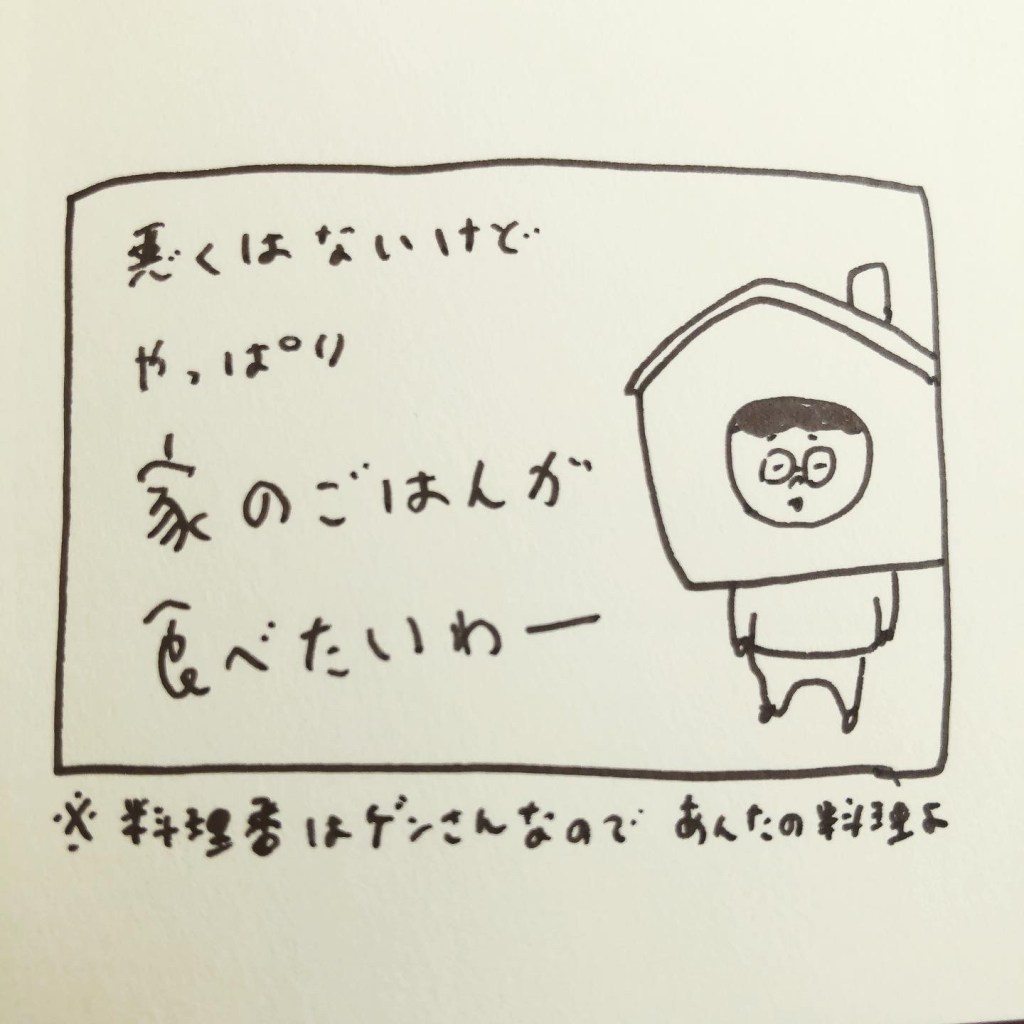 悪くはないけど
やっぱり
家のごはんが
食べたいわー
※料理番はゲンさんなので あんたの料理よ